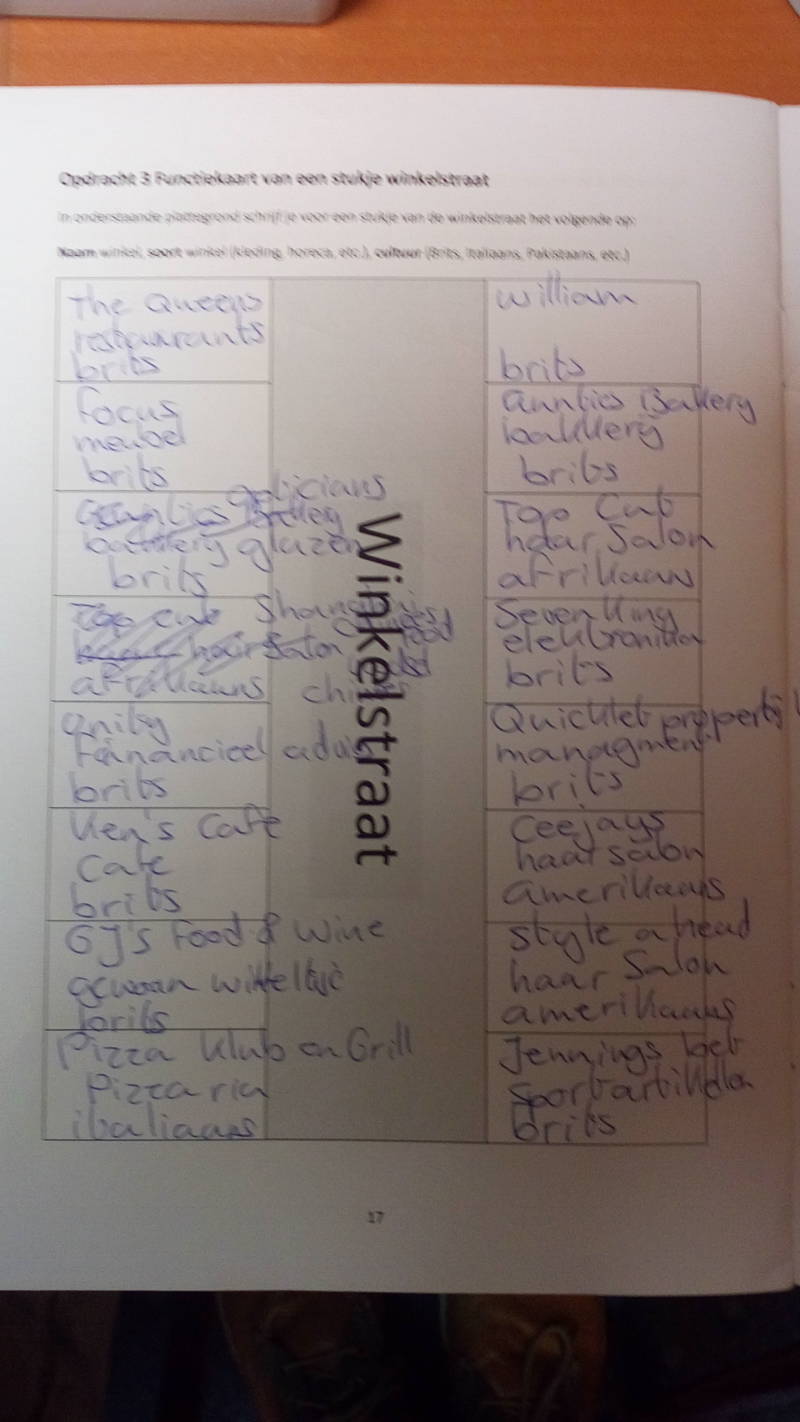 Opdracht 3 Functiekaart van een stukje winkelstraat
In onderstaande plattegrond schrijf je voor een stukje van de winkelstraat het volgende op:
Naam winkel, soort winkel (kleding, horeca, etc.), cultuur (Brits, Italiaans, Pakistaans, etc.)
The Queens
restaurants
brits
focus
meubel
brits
opticians
glazen
brits
Top cut
hair salon
afrikaans
Financieel advies
brits
Ken's Cafe
Cafe
brits
GJ's Food & Wine
gewoon
brits
Pizza Klub en Grill
Pizzaria
italiaans
Winkelstraat
william
brits
Bakery
bakkerij
brits
Top Cut
haar salon
afrikaans
Seven King
brits
Quicklet property
managment
brits
Ceejays
haar salon
amerikaans
style ahead
haar salon
amerikaans
Jennings bet
brits
17